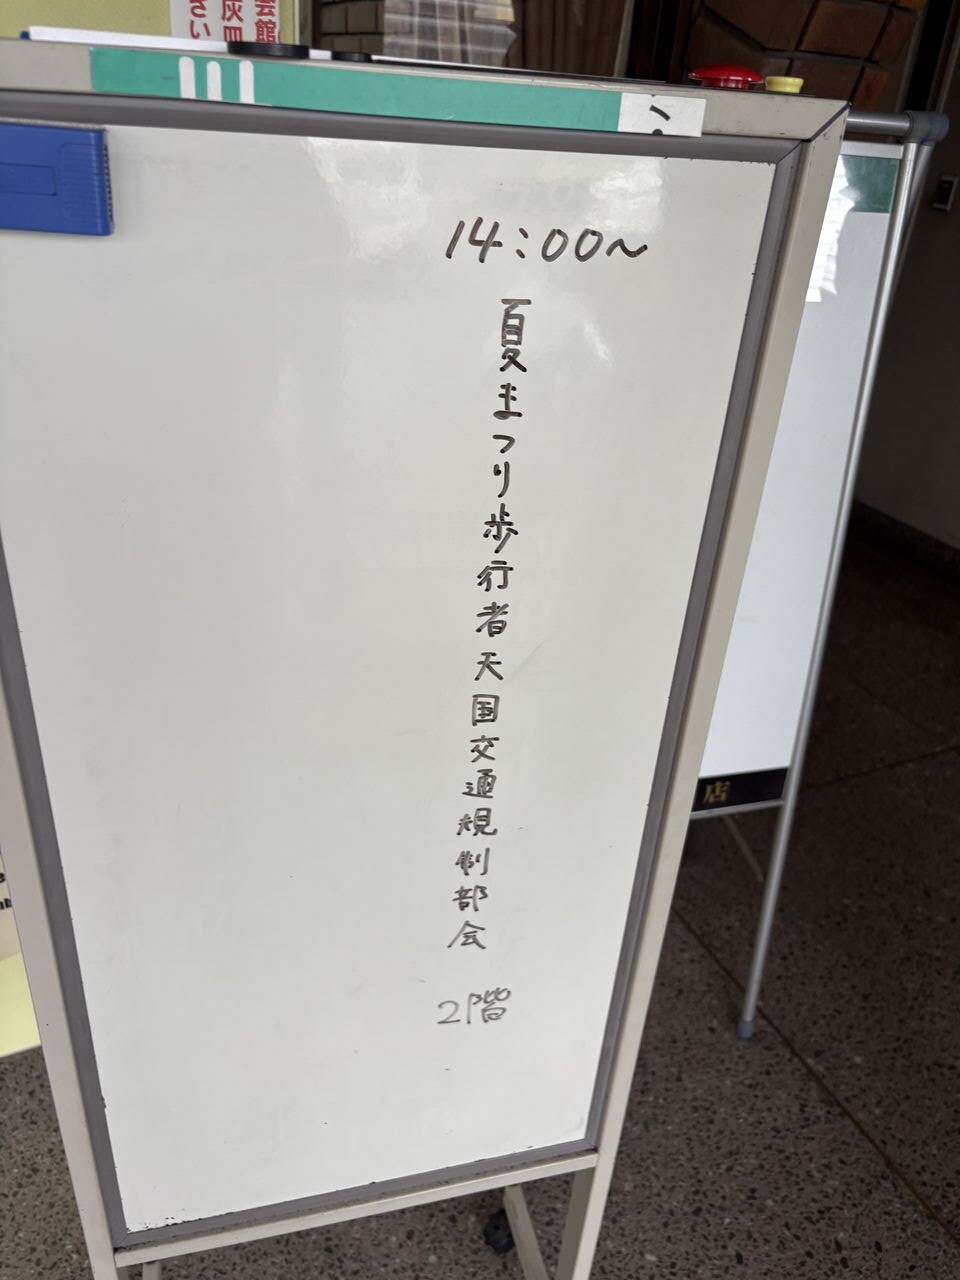 14:00～
夏まつり歩行者天国交通規制部会
2階
会館
灰皿
さい
店